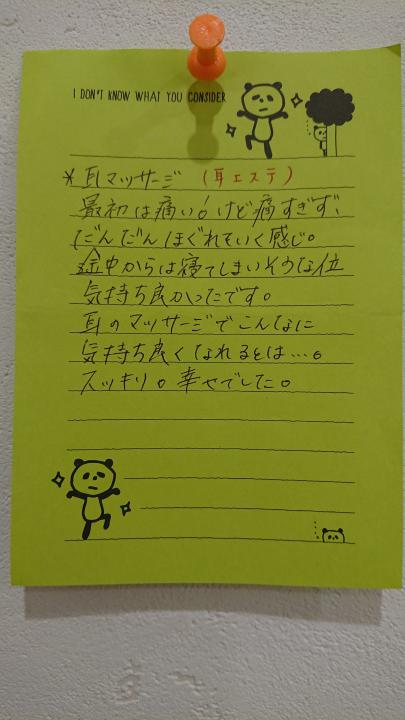 I DON'T KNOW WHAT YOU CONSIDER
*耳マッサージ (耳エステ)
最初は痛い！けど痛すぎず、
だんだんほぐれていく感じ。
途中からは寝てしまいそうな位
気持ち良かったです。
耳のマッサージでこんなに
気持ち良くなれるとは…。
スッキリ。幸せでした。